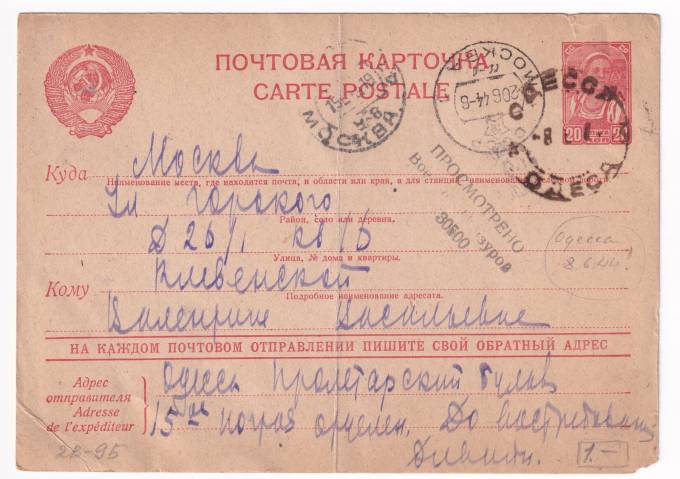 ПОЧТОВАЯ КАРТОЧКА
CARTE POSTALE
МОСКВА
МОСКВА
20644-6
ОДЕССА
ОДЕССА
20 20
ПРОСМОТРЕНО
Военной Цензурой
30500
Куда Москва
Наименование места, где находится почта, и области или края, а для станций наименование железной дороги
Ул Горского
Район, село или деревня.
Д 26/1 кв
Улица, № дома и квартиры.
Кому Клевенской
Подробное наименование адресата.
Валентине Васильевне
НА КАЖДОМ ПОЧТОВОМ ОТПРАВЛЕНИИ ПИШИТЕ СВОЙ ОБРАТНЫЙ АДРЕС
Адрес отправителя
Adresse de l'expéditeur
Одесса Пролетарский бульв
15ое почтов отделен. До востребован
Одесса
8.6.44.
28-95
1.-